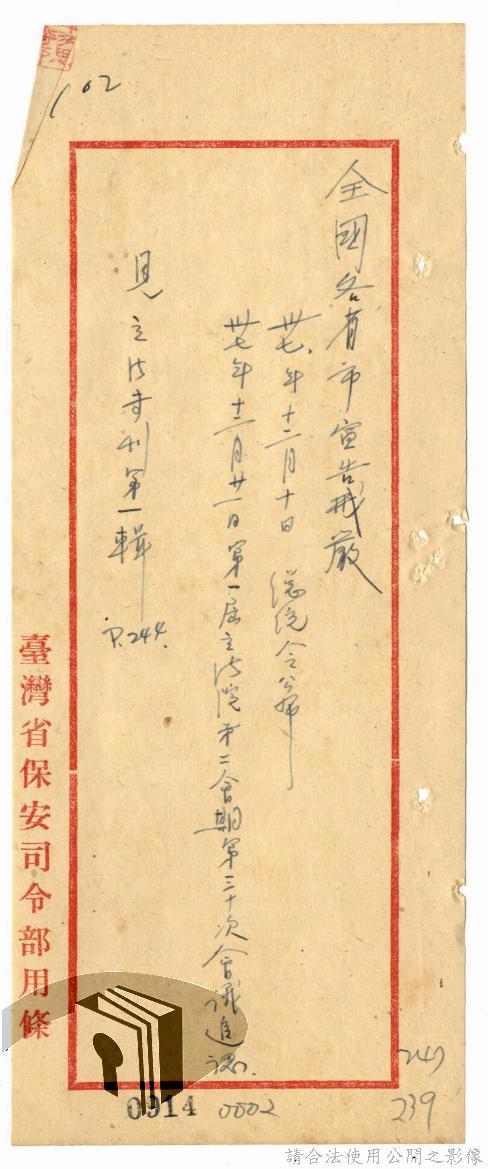 102
全國各省市宣告戒嚴
卅七年十二月十日 總統令公布
卅七年十二月廿一日第一屆立法院第二會期第三十次會議追認
見立法專刊第一輯 P.244.
臺灣省保安司令部用條
0914 0002
247
239
請合法使用公開之影像